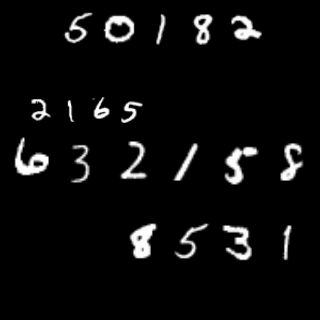 50182
2165
632158
8531